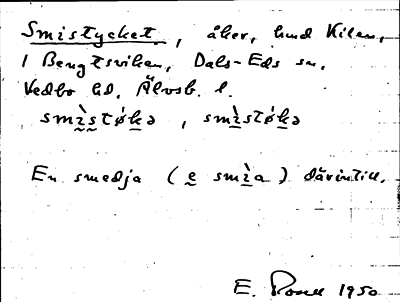 Smistycket, åker, hmd Kilen,
1 Bengtsviken, Dals-Eds sn.
Vedbo hd. Älvsb. l.
smìstǿkə, smìstǿkə
En smedja (e smìa) därintill.
E. Rosell 1950